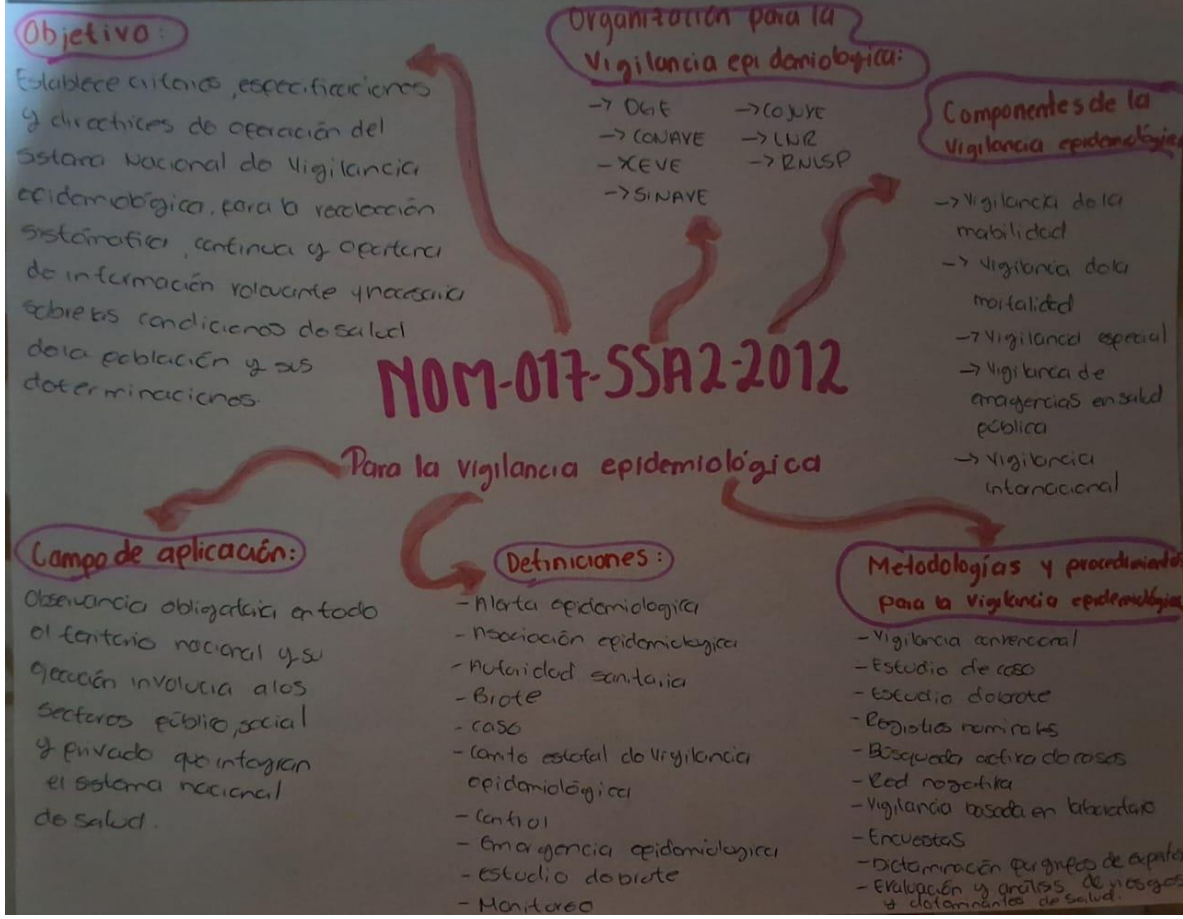 Objetivo:
Establece criterios, especificaciones
y directrices de operación del
sistema Nacional de Vigilancia
epidemiológica, para la recolección
sistemática, continua y oportuna
de información relevante y necesaria
sobre las condiciones de salud
de la población y sus
determinaciones.
Organización para la
Vigilancia epidemiológica:
-> DGE
-> CONAVE
- XEVE
-> SINAVE
-> COJUVE
-> LNR
-> RNLSP
Componentes de la
Vigilancia epidemiológica
-> Vigilancia de la
mabilidad
-> Vigilancia de la
mortalidad
-> Vigilancia especial
-> Vigilancia de
emergencias en salud
pública
-> Vigilancia
internacional
NOM-017-SSA2-2012
Para la vigilancia epidemiológica
Campo de aplicación:
Observancia obligatoria en todo
el territorio nacional y su
ejecución involucra a los
sectores público, social
y privado que integran
el sistema nacional
de salud.
Definiciones:
- Alerta epidemiologica
- Asociación epidemiologica
- Autoridad sanitaria
- Brote
- caso
- Comite estatal de vigilancia
epidemiológica
- Control
- Emergencia epidemiologica
- estudio de brote
- Monitoreo
Metodologías y procedimientos
para la vigilancia epidemiológica
- Vigilancia convencional
- Estudio de caso
- Estudio de brote
- Registros nominales
- Búsqueda activa de casos
- Red negativa
- Vigilancia basada en laboratorio
- Encuestas
- Dictaminación por grupos de expertos
- Evaluación y análisis de riesgos
y determinantes de salud.